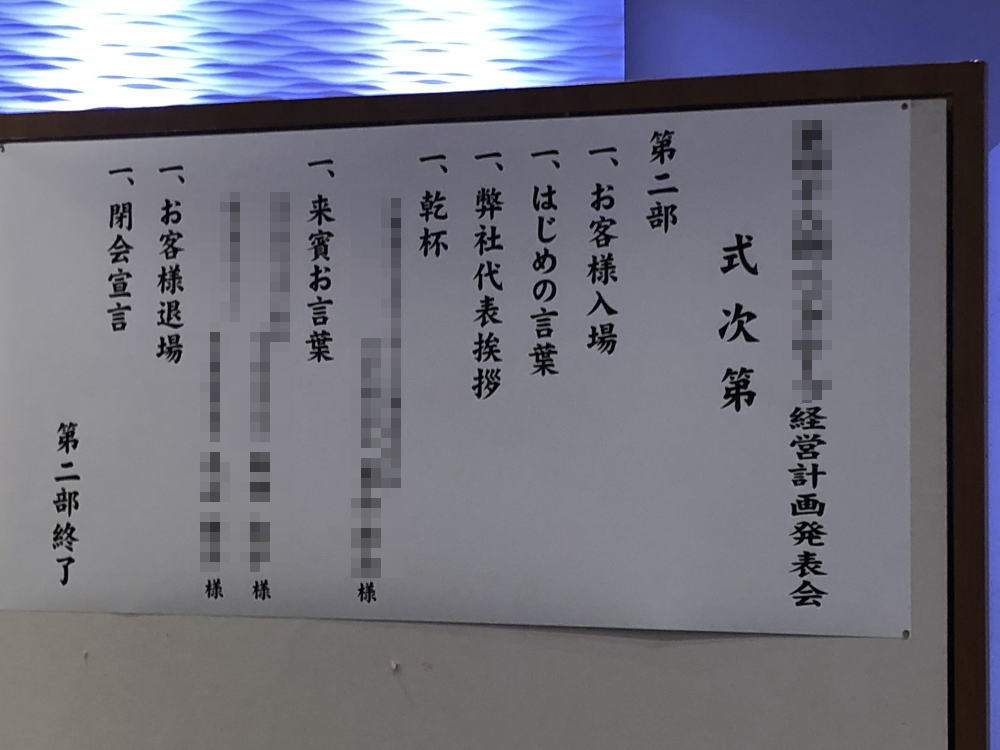 経営計画発表会
式次第
第二部
一、お客様入場
一、はじめの言葉
一、弊社代表挨拶
一、乾杯
様
一、来賓お言葉
様
様
一、お客様退場
一、閉会宣言
第二部終了